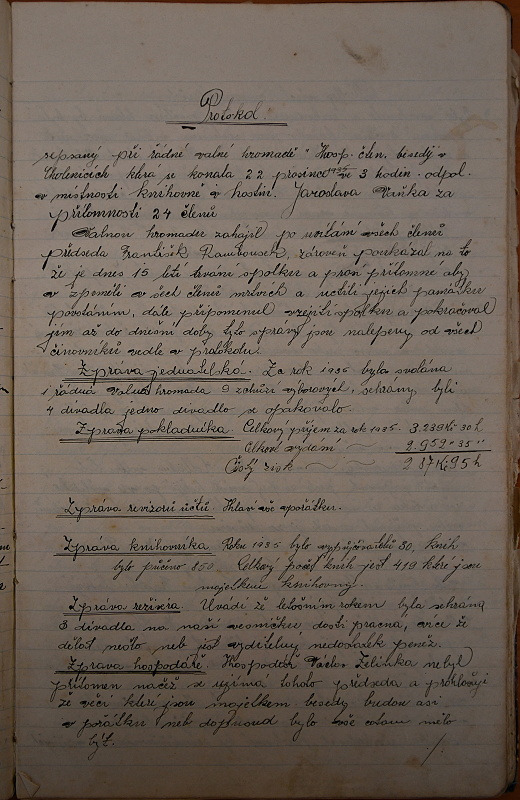 Protokol
sepsaný při řádné valné hromadě "Hosp. čten. besedy v
Cholenicích která se konala 22 prosince 1935 ve 3 hodin. odpol.
v místnosti knihovně v hostin. Jaroslava Vaňka za
přítomnosti 24 členů
Valnou hromadu zahájil po uvítání všech členů
předseda František Rambousek, zároveň poukázal na to
že je dnes 15 letí trvání spolku a proto přítomné aby
v zpoměli všech členů mrtvích a uctili jejich památku
povstáním, dále připomenul vzejití spolku a pokracoval
jím až do dnešní doby, tyto zprávy jsou nalepeny od všech
činovníků vedle v protokolu.
Zpráva jednatelská. Za rok 1935 byla svolána
1 řádná valná hromada 9 schůzí výborových, sehrány byli
4 divadla jedno divadlo se opakovalo.
Zpráva pokladníka. Celkový příjem za rok 1935. 3.239Kč 30 h
Celkové vydání 2.952 " 35 "
Čistý zisk 287Kč95h
Zpráva revizorů účtů. Hlásí vše v pořádku.
Zpráva knihovníka Roku 1935 bylo vypůjčovatelů 50, knih
bylo půjčeno 850 Celkový počet knih jest 419 které jsou
majetkem knihovny.
Zpráva režiséra. Uvádí že letošním rokem byla sehrána
3 divadla na naší vesničku dosti pracna, více že
dělat nešlo neb jest viditelný nedostatek peněz.
Zpráva hospodáře. Hospodář Václav Zelinka nebyl
přítomen načež se ujímá tohoto předseda a prohlašuji
že věci které jsou majetkem besedy budou asi
v pořádku neb doposud bylo vše co tam mělo
být.